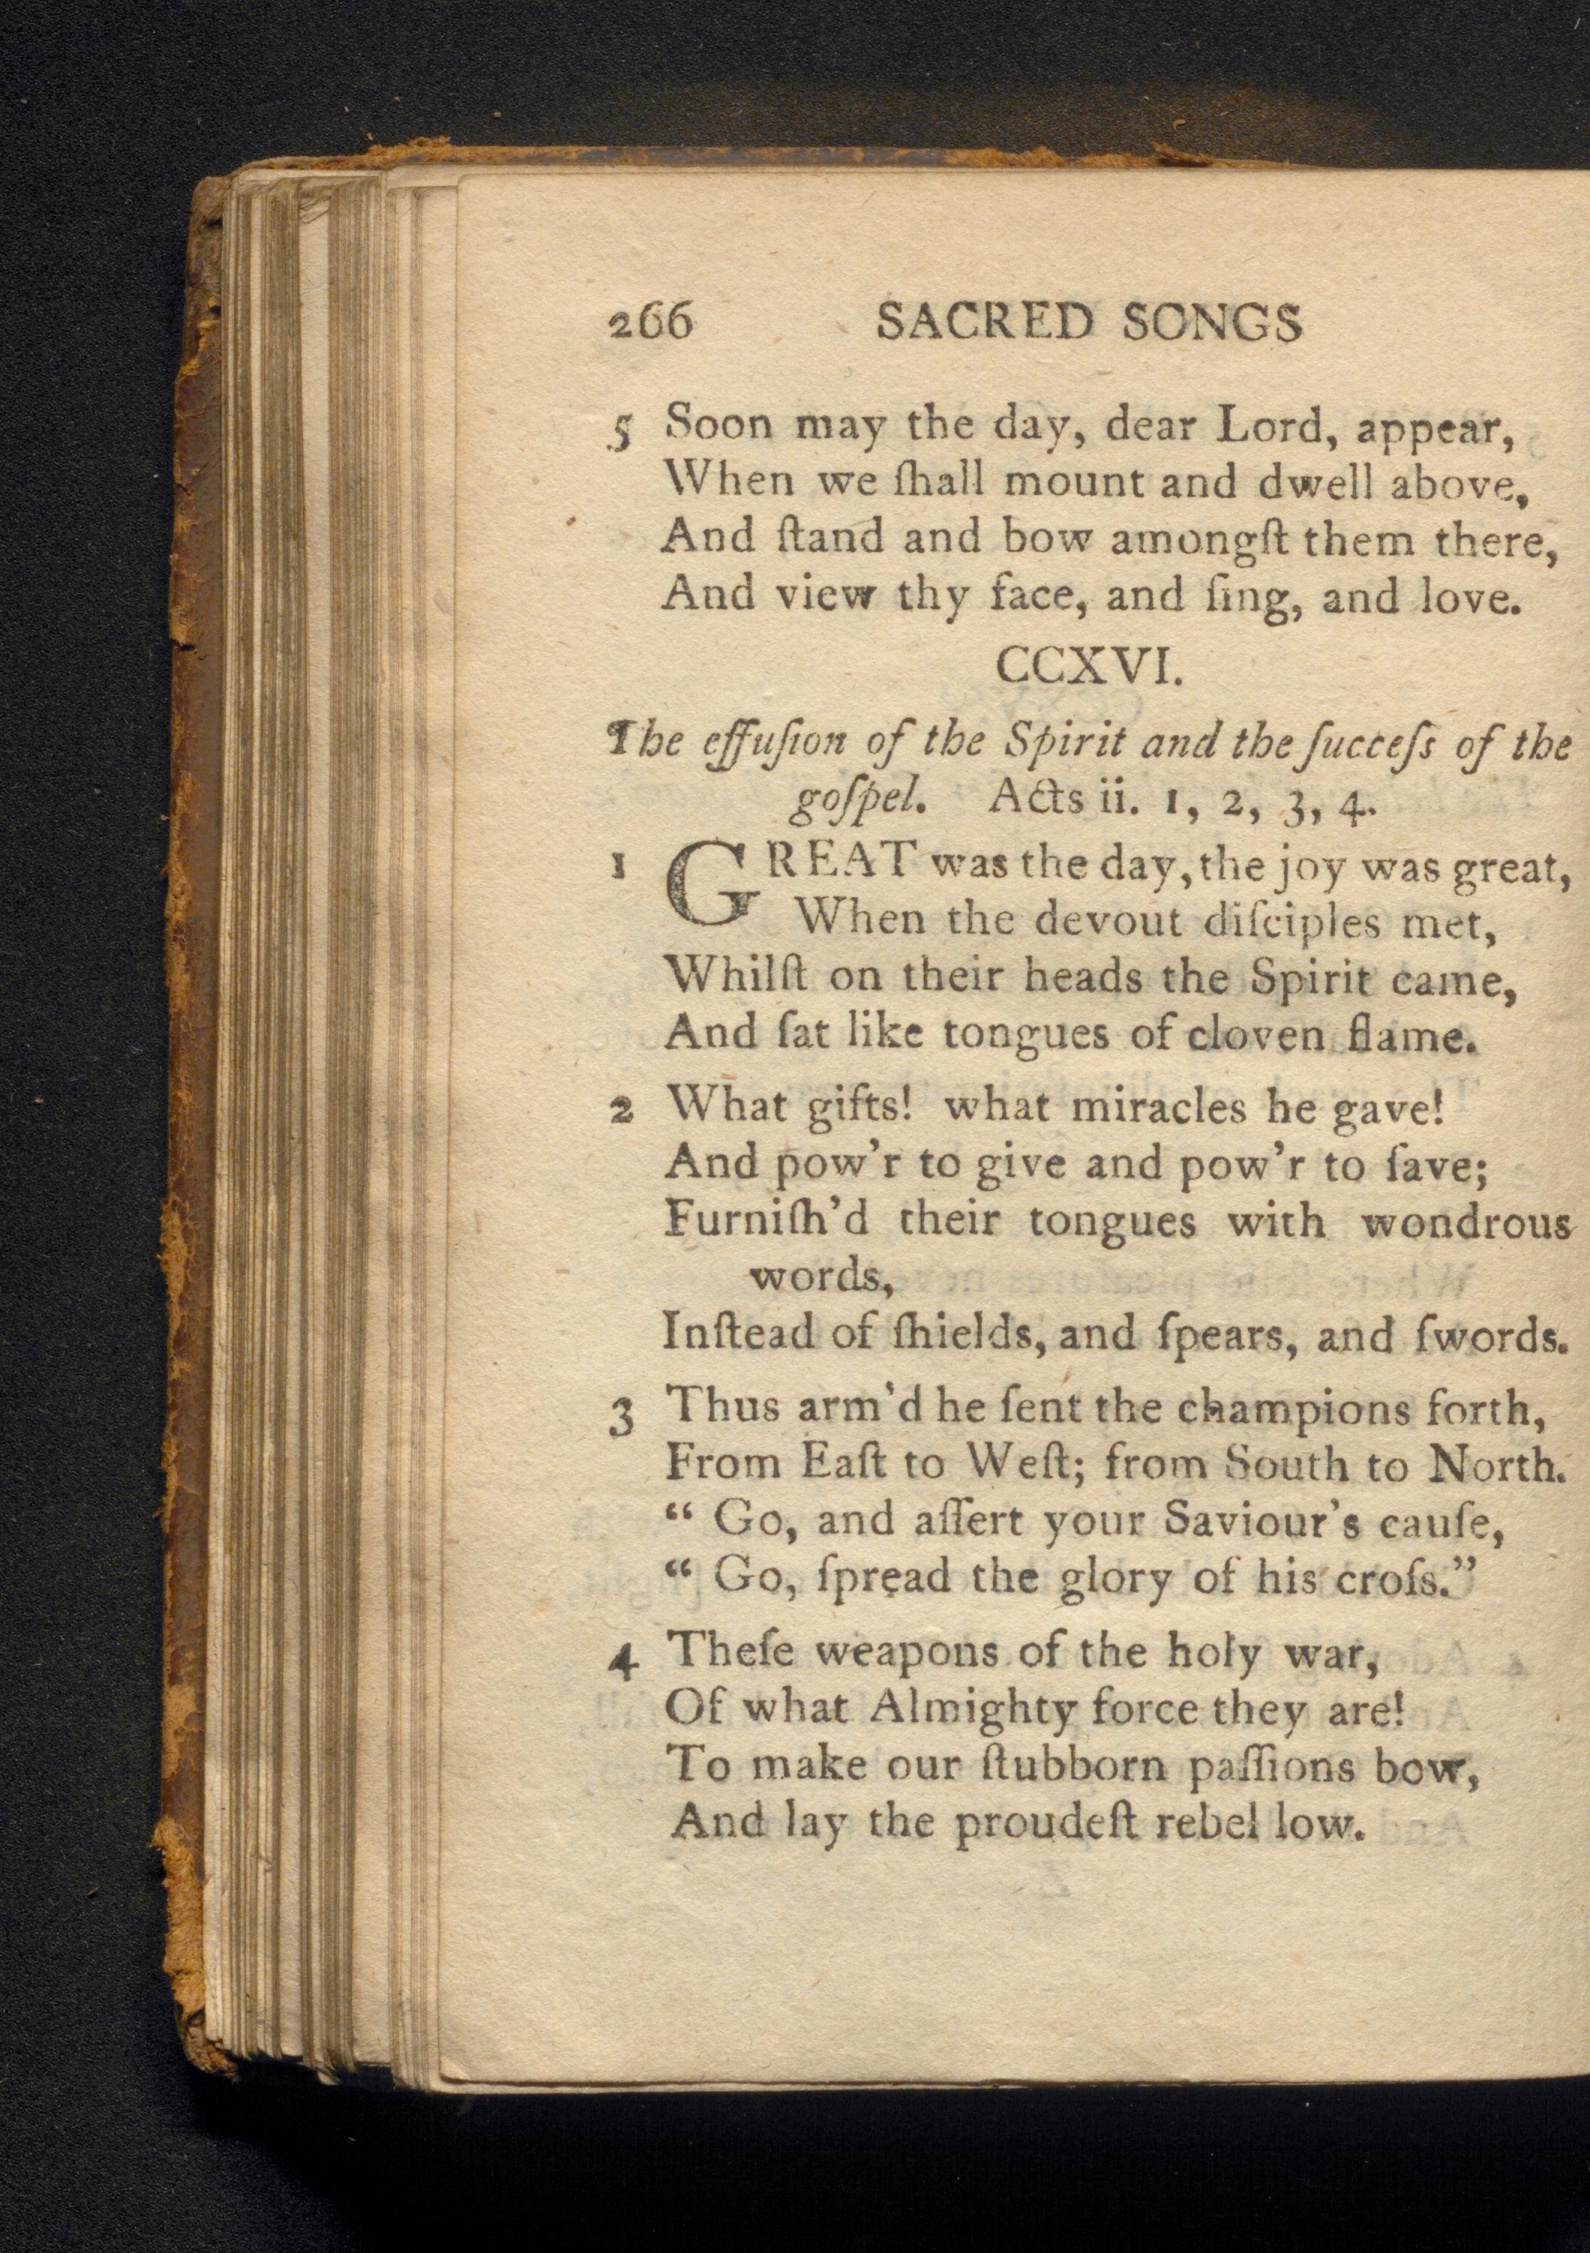 266 SACRED SONGS
5 Soon may the day, dear Lord, appear,
When we ſhall mount and dwell above,
And ſtand and bow amongſt them there,
And view thy face, and ſing, and love.
CCXVI.
The effuſion of the Spirit and the ſucceſs of the
goſpel. Acts ii. 1, 2, 3, 4.
1 GREAT was the day, the joy was great,
When the devout diſciples met,
Whilſt on their heads the Spirit came,
And ſat like tongues of cloven flame.
2 What gifts! what miracles he gave!
And pow'r to give and pow'r to ſave;
Furniſh'd their tongues with wondrous
words,
Inſtead of ſhields, and ſpears, and ſwords.
3 Thus arm'd he ſent the champions forth,
From Eaſt to Weſt; from South to North.
“ Go, and aſſert your Saviour's cauſe,
“ Go, ſpread the glory of his croſs.”
4 Theſe weapons of the holy war,
Of what Almighty force they are!
To make our ſtubborn paſſions bow,
And lay the proudeſt rebel low.